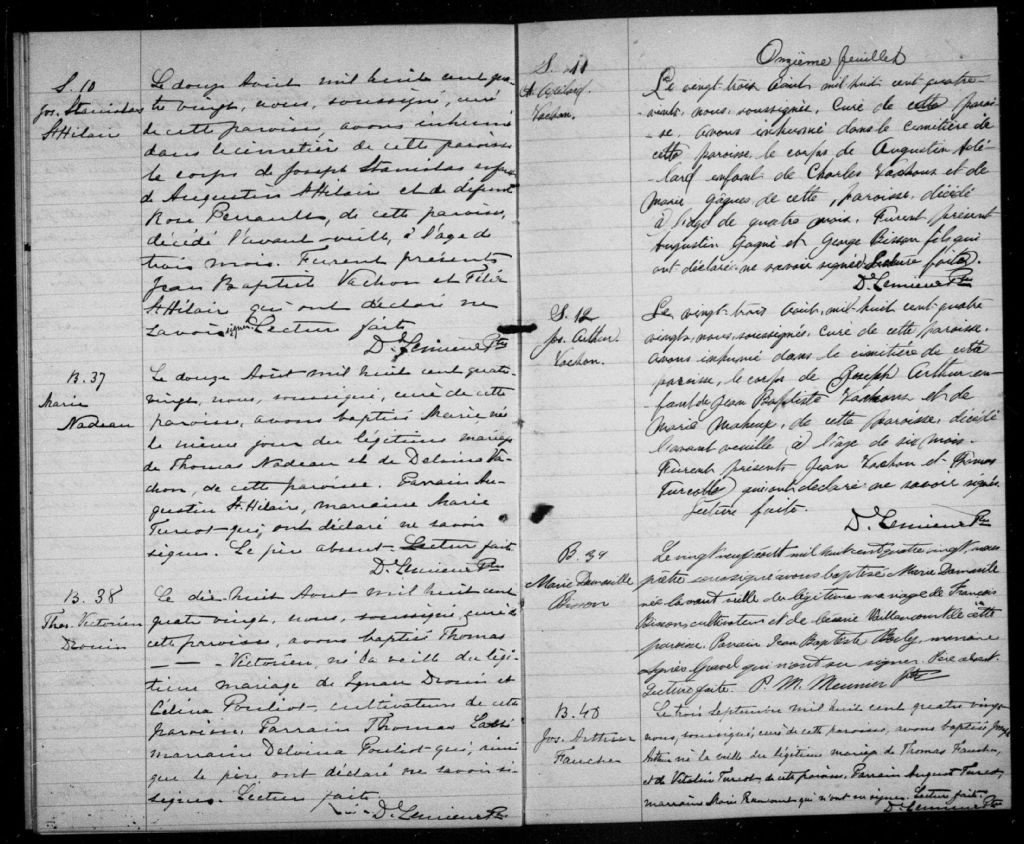 S. 10
Jos. Stanislas
St Hilair
Le douze Aout mil huit cent qua-
tre vingt, nous, soussigné, curé
de cette paroisse, avons inhumé
dans le cimetière de cette paroisse
le corps de Joseph Stanislas enfant
d'Augustin St Hilair et de défunte
Rose Perrault, de cette paroisse,
décédé l'avant-veille, à l'age de
trois mois. Furent présents
Jean Baptiste Vachon et Félix
St Hilair qui ont déclaré ne
savoir signer Lecture faite
D. Lemieux Ptre
B. 37
Marie
Nadeau
Le douze Août mil huit cent quatre-
vingt, nous, soussigné, curé de cette
paroisse, avons baptisé Marie, née
le même jour du légitime mariage
de Thomas Nadeau et de Delvina Va-
chon, de cette paroisse. Parrain Au-
gustin St. Hilaire, marraine Marie
Turcot qui, ont déclaré ne savoir
signer. Le père absent. Lecture faite
D. Lemieux Ptre
B. 38
Thos. Victorien
Drouin
Le dix huit Aout mil huit cent
quatre vingt, nous, soussigné, curé de
cette paroisse, avons baptisé Thomas
— — Victorien, né la veille du légi-
time mariage de Ignace Drouin et
Célina Pouliot, cultivateurs de cette
paroisse. Parrain Thomas
marraine Delvina Pouliot qui, ainsi
que le père ont déclaré ne savoir si-
signer. Lecture faite
D. Lemieux Ptre
Onzième feuillet
S. 11
A. Adélard
Vachon.
Le vingt trois Août, mil huit cent quatre
vingt, nous, soussigné, Curé de cette parois-
-se, avons inhumé dans le cimetière de
cette paroisse, le corps de Augustin Adé-
-lard enfant de Charles Vachons et de
Marie Gâgnes de cette paroisse, décédé
à l'âge de quatre mois. Furent présent
Augustin Gagné et George Bisson fils qui
ont déclaré ne savoir signé Lecture faite.
D. Lemieux Ptre
S. 12
Jos. Arthur
Vachon.
Le vingt-trois Août, mil huit cent quatre
vingt, nous, soussigné, Curé de cette paroisse,
avons inhumé dans le cimetière de cette
paroisse, le corps de Joseph Arthur en-
-fant de Jean Baptiste Vachons et de
Marie Maheux, de cette paroisse, décidé
l'avant veuille, à l'âge de six mois.
Furent présents Jean Vachon et Thomas
Turcotte, qui ont declaré ne savoir signer
Lecture faite.
D. Lemieux Ptre
B. 39
Marie Damasille
Bisson
Le vingt neuf août mil huit cent quatre vingt, nous
prêtre soussigné avons baptisé Marie Damasille
née l'avant veille du légitime mariage de François
Bisson, cultivateur et de Césarie Vaillancourt de cette
paroisse. Parrain Jean Baptiste marraine
Agnès Gravel qui n'ont su signer. Père absent.
Lecture faite. P. M. Meunier Ptre
B. 40
Jos. Arthur
Faucher
Le trois Septembre mil huit cent quatre vingt
nous, soussigné, curé de cette paroisse, avons baptisé Joseph
Arthur né la veille du légitime mariage de Thomas Faucher,
et de Vitaline Turcot, de cette paroisse, Parrain August Turcot,
marraine Marie qui n'ont su signer. Lecture faite
D. Lemieux Ptre